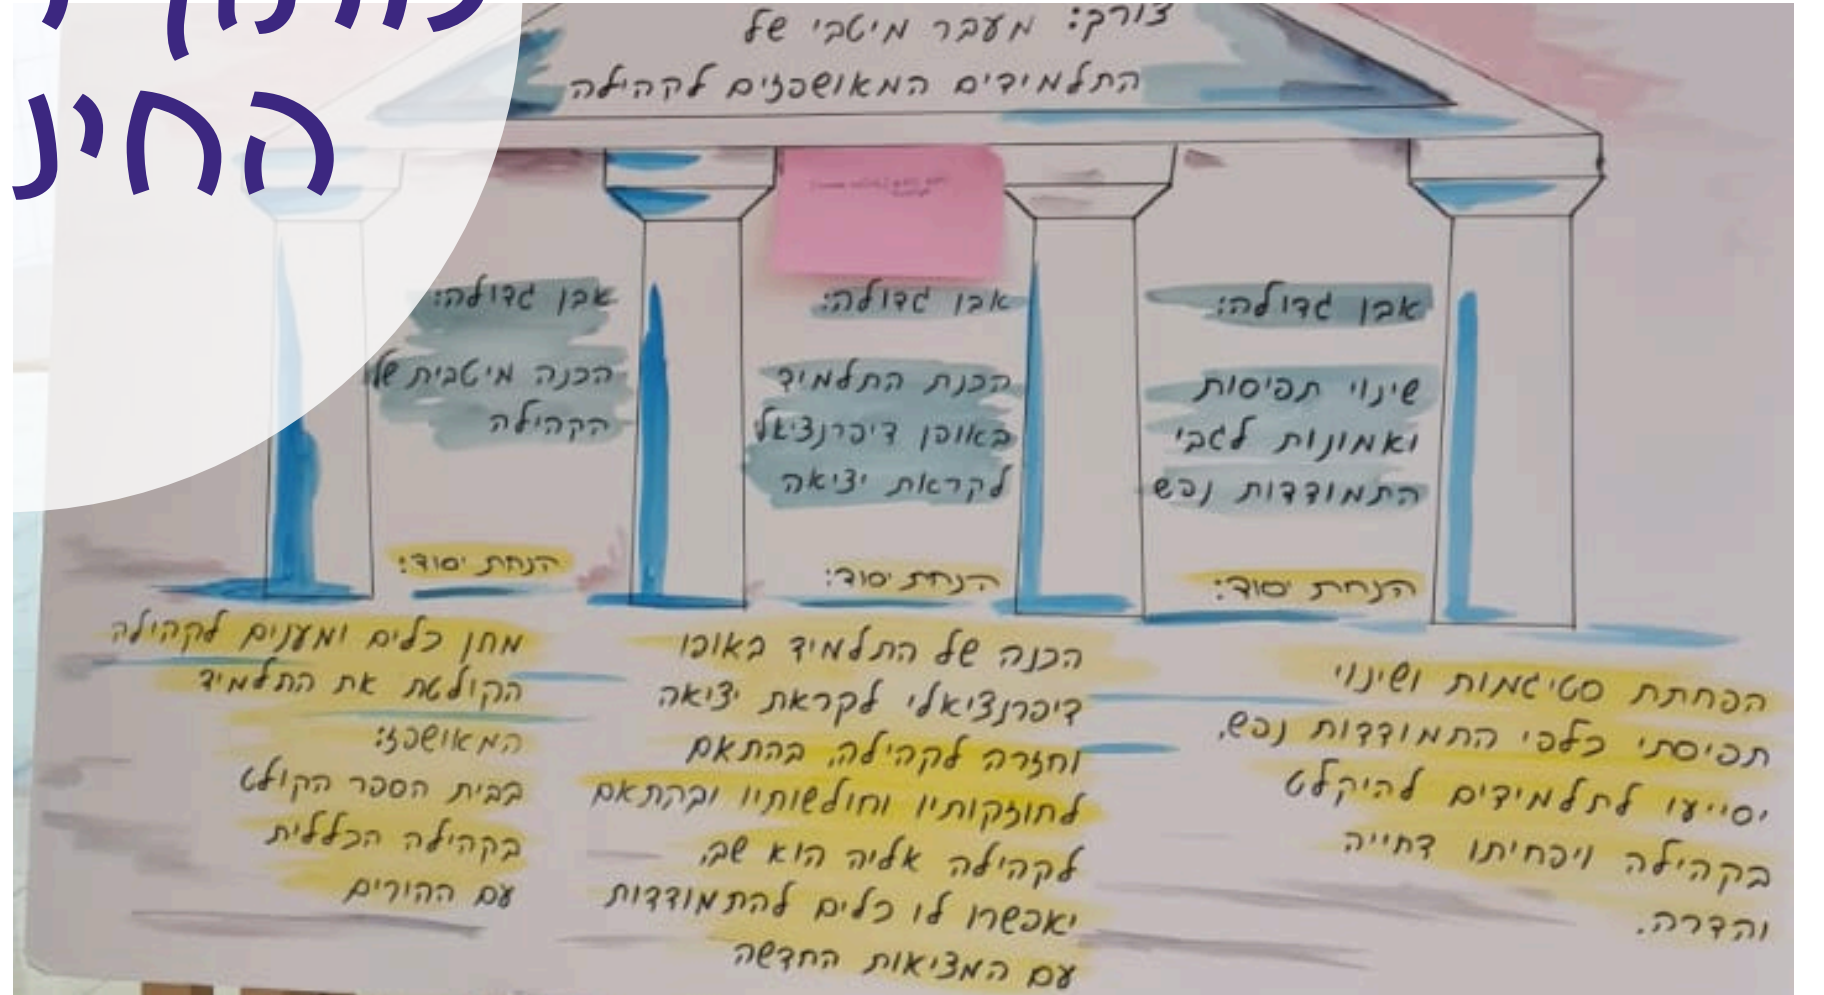 החינ
צורך: מעבר מיטבי של
התלמידים המאושפזים לקהילה
אבן גדולה:
שינוי תפיסות
ואמונות לגבי
התמודדות נפש
הנחת יסוד:
הפחתת סטיגמות ושינוי
תפיסתי כלפי התמודדות נפש,
יסייעו לתלמידים להיקלט
בקהילה ויפחיתו דחייה
והדרה.
אבן גדולה:
הכנת התלמיד
באופן דיפרנציאלי
לקראת יציאה
הנחת יסוד:
הכנה של התלמיד באופן
דיפרנציאלי לקראת יציאה
וחזרה לקהילה, בהתאם
לחוזקותיו וחולשותיו ובהתאם
לקהילה אליה הוא שב,
יאפשרו לו כלים להתמודדות
עם המציאות החדשה
אבן גדולה:
הכנה מיטבית של
הקהילה
הנחת יסוד:
מחן כלים ומענים לקהילה
הקולטת את התלמיד
המאושפז:
בבית הספר הקולט
בקהילה הכללית
עם ההורים